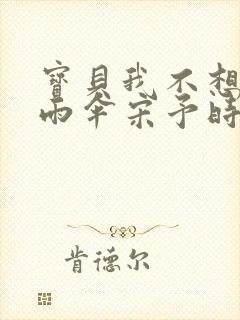 寶貝我不想
雨伞宋予時
肯德尔